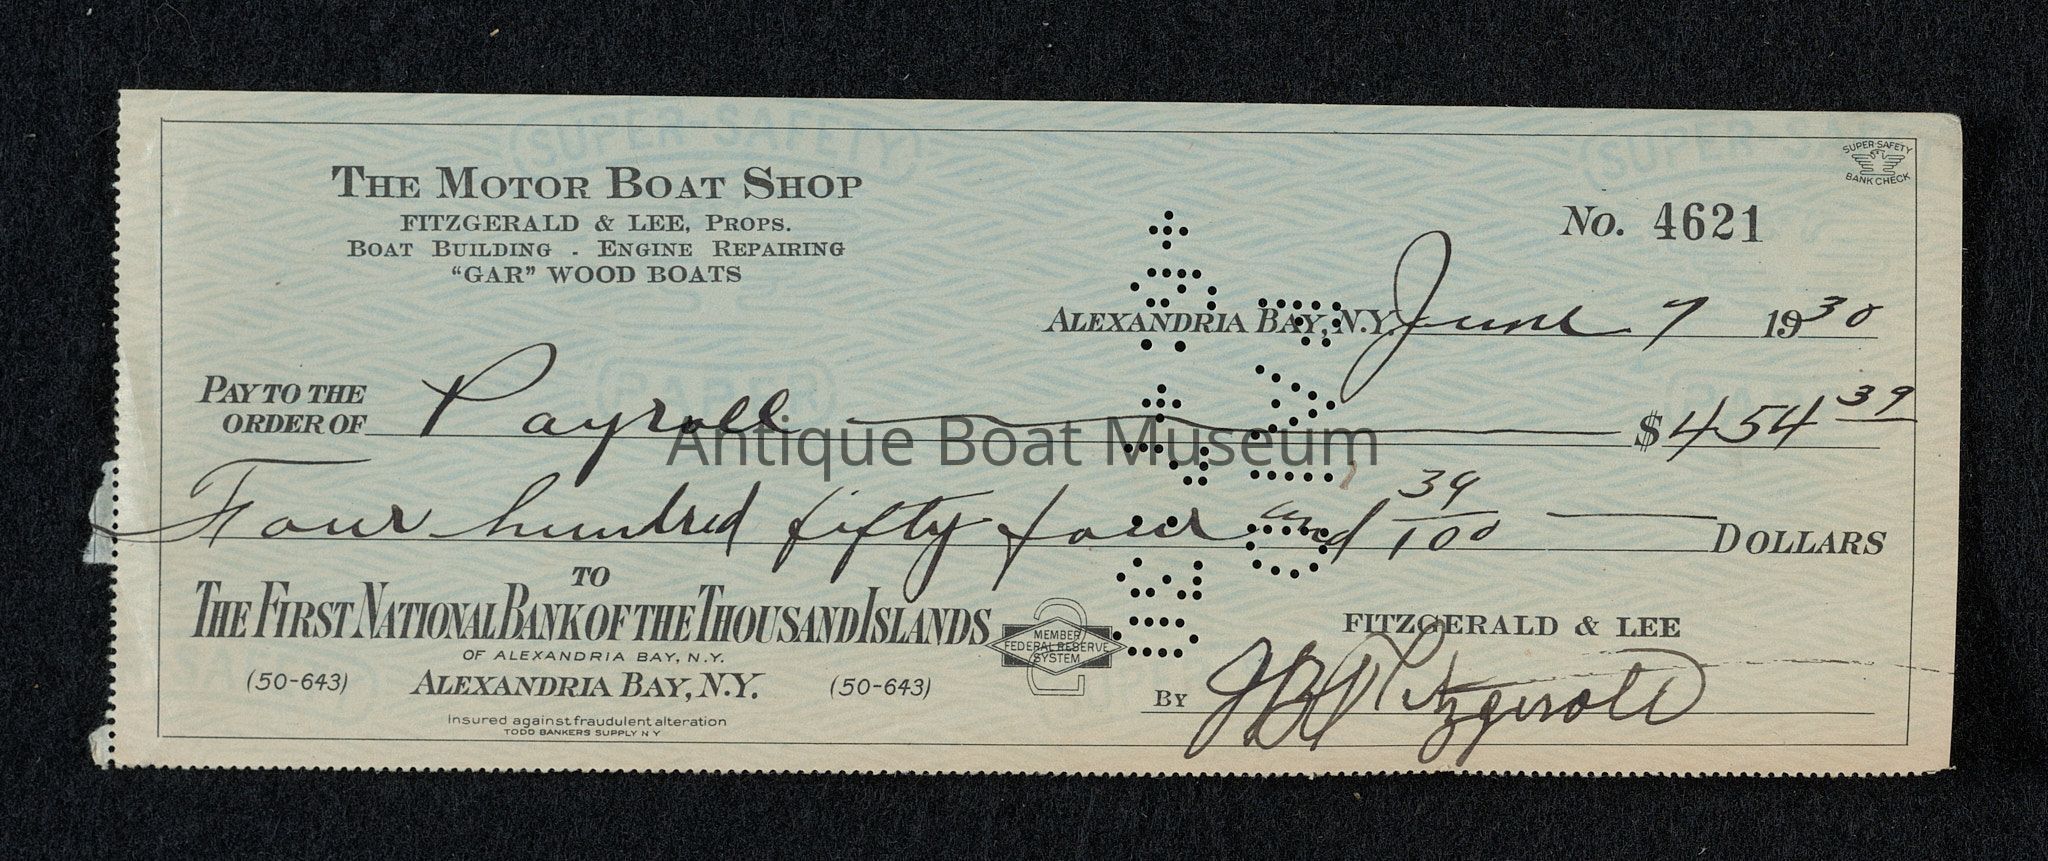 SUPER-SAFETY
SUPER-SAFETY
BANK CHECK
THE MOTOR BOAT SHOP
FITZGERALD & LEE, PROPS.
BOAT BUILDING - ENGINE REPAIRING
"GAR" WOOD BOATS
No. 4621
ALEXANDRIA BAY, N.Y. June 7 1930
PAY TO THE
ORDER OF Payroll $454 39
Antique Boat Museum
Four hundred fifty four and 39/100 DOLLARS
TO
THE FIRST NATIONAL BANK OF THE THOUSAND ISLANDS
OF ALEXANDRIA BAY, N.Y.
(50-643) ALEXANDRIA BAY, N.Y. (50-643)
Insured against fraudulent alteration
TODD BANKERS SUPPLY N Y
MEMBER
FEDERAL RESERVE
SYSTEM
2
FITZGERALD & LEE
BY Fitzgerald